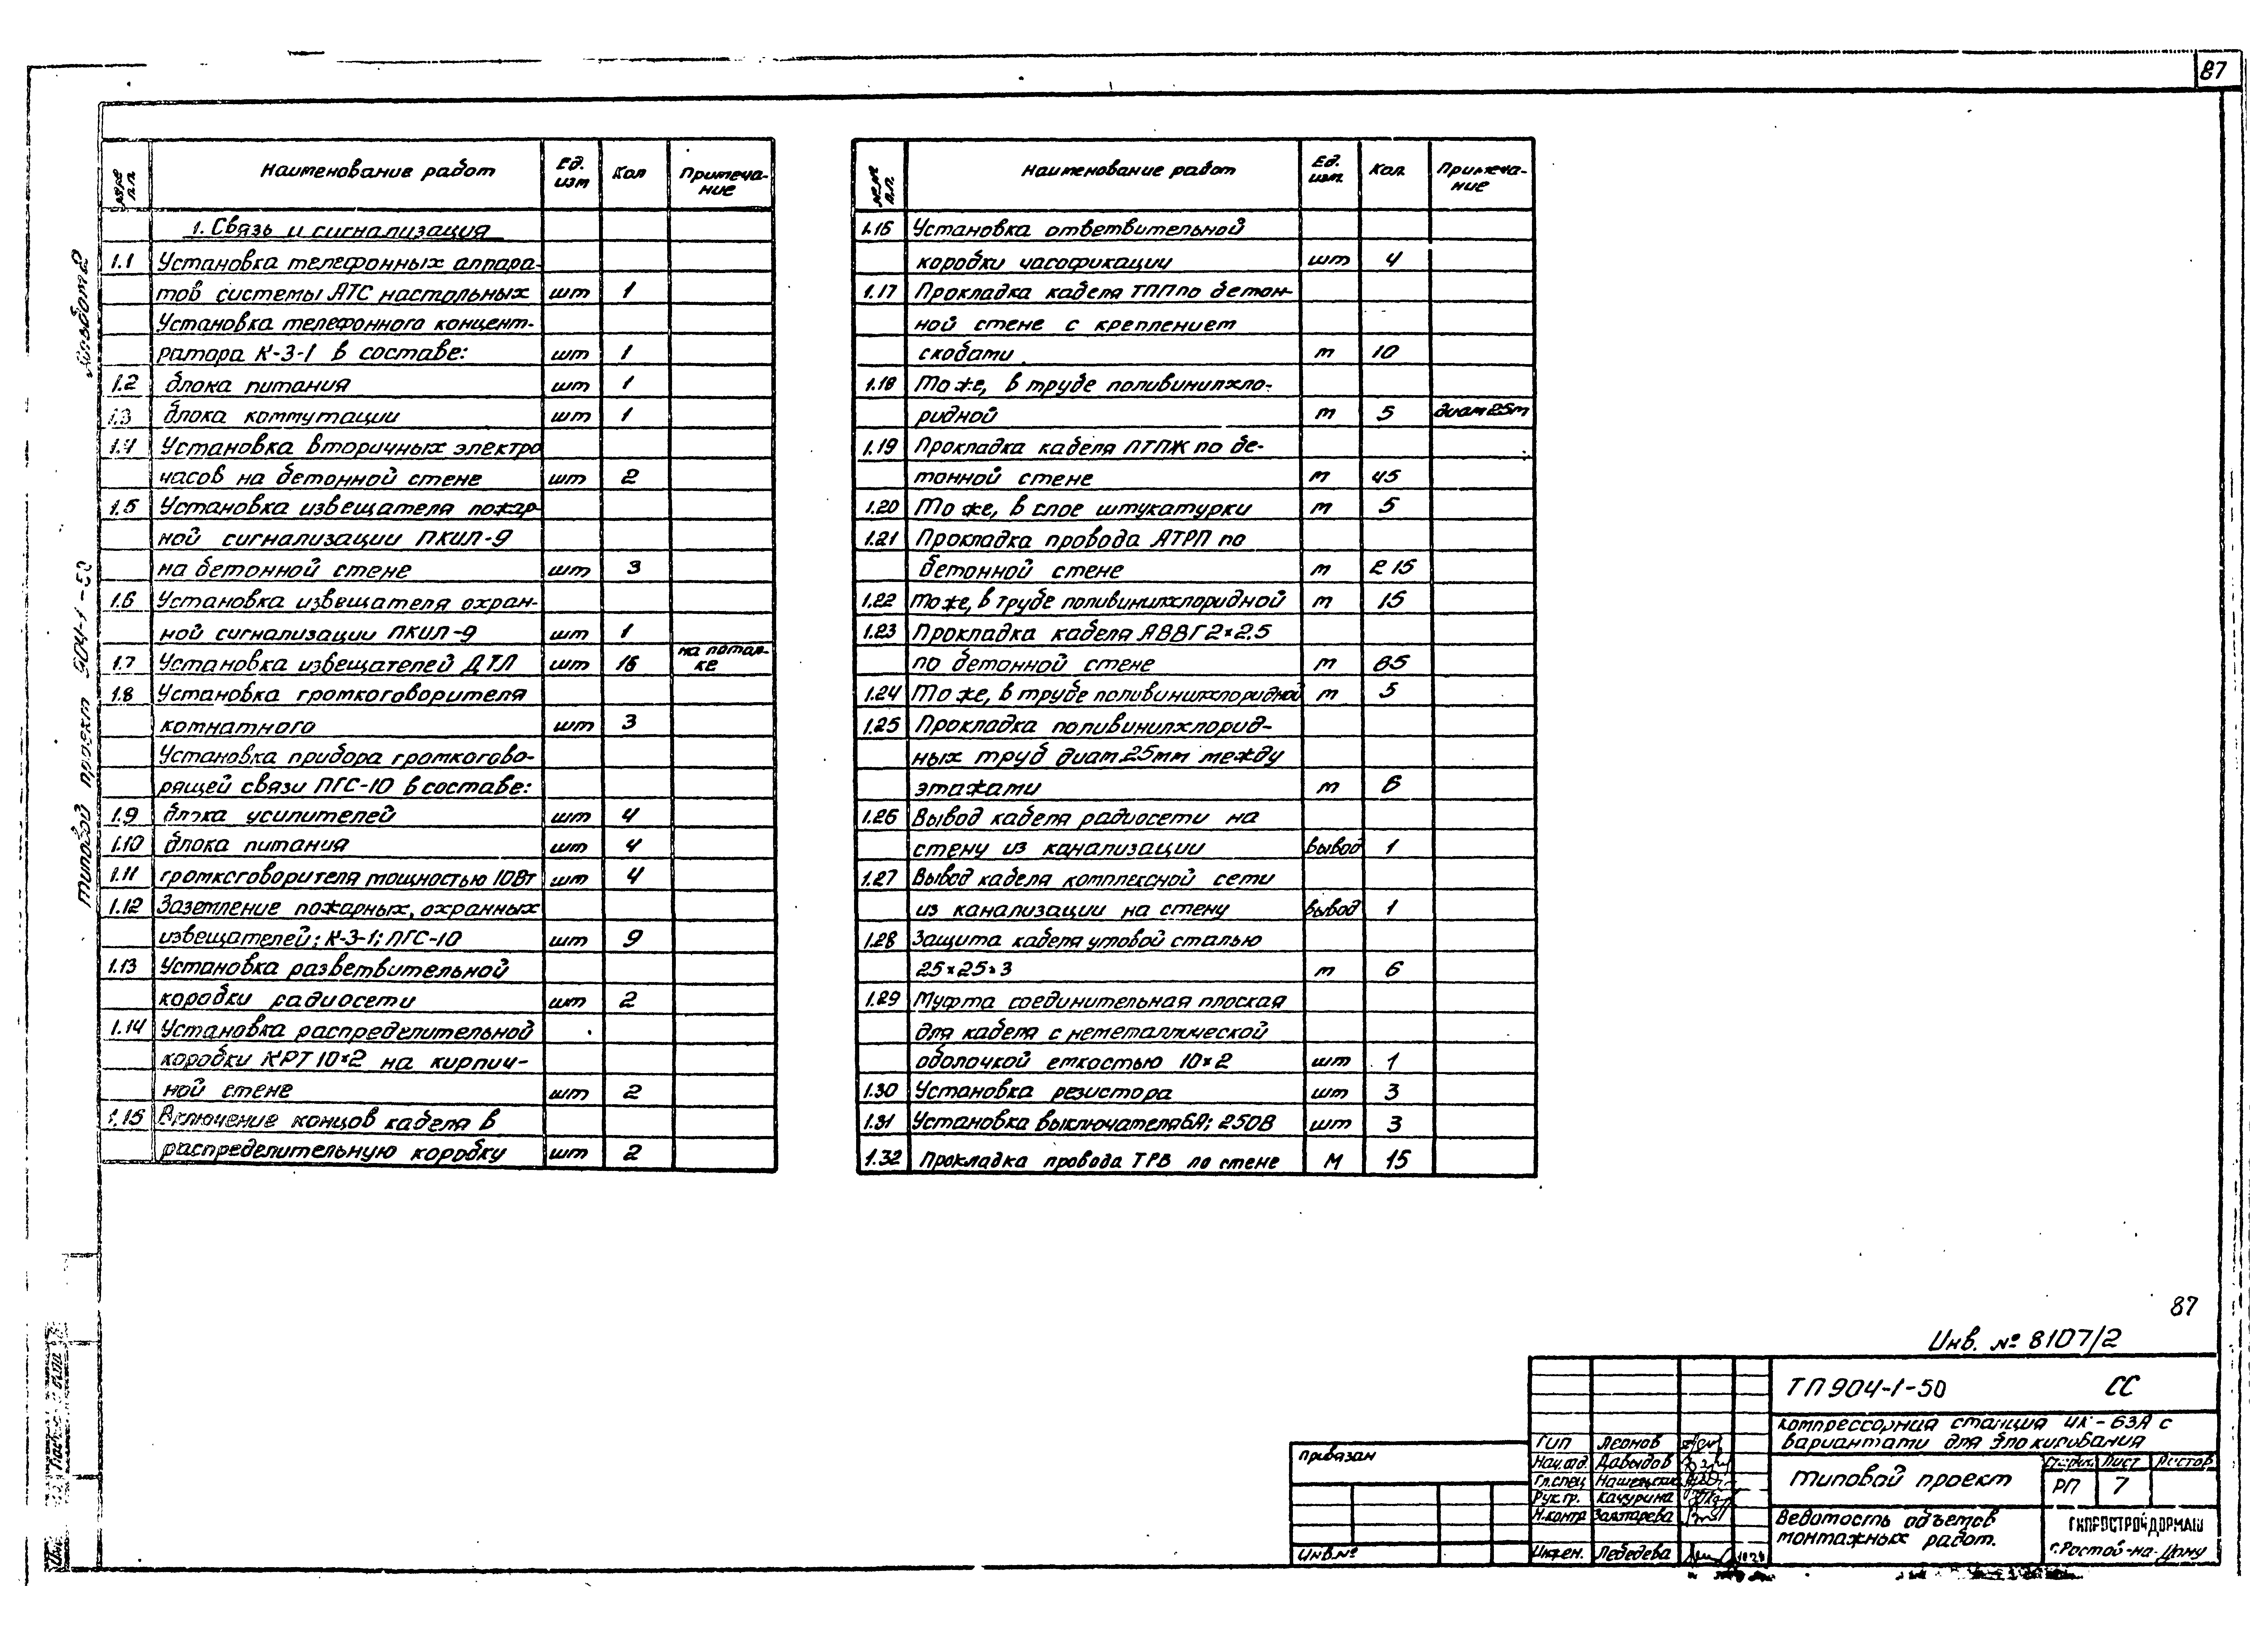 87
Альбом 2
Типовой проект 904-1-50
№№ п.п. Наименование работ Ед. изм Кол Примеча-ние
1. Связь и сигнализация
1.1 Установка телефонных аппара-
тов системы АТС настольных шт 1
Установка телефонного концент-
ратора К-3-1 в составе: шт 1
1.2 блока питания шт 1
1.3 блока коммутации шт 1
1.4 Установка вторичных электро
часов на бетонной стене шт 2
1.5 Установка извещателя пожар-
ной сигнализации ПКИЛ-9
на бетонной стене шт 3
1.6 Установка извещателя охран-
ной сигнализации ПКИЛ-9 шт 1
1.7 Установка извещателей ДТЛ шт 16 на потол-ке
1.8 Установка громкоговорителя
комнатного шт 3
Установка прибора громкогово-
рящей связи ПГС-10 в составе:
1.9 блока усилителей шт 4
1.10 блока питания шт 4
1.11 громкоговорителя мощностью 10Вт шт 4
1.12 Заземление пожарных, охранных
извещателей; К-3-1; ПГС-10 шт 9
1.13 Установка разветвительной
коробки радиосети шт 2
1.14 Установка распределительной
коробки КРТ 10×2 на кирпич-
ной стене шт 2
1.15 Включение концов кабеля в
распределительную коробку шт 2
№№ п.п. Наименование работ Ед. изм. Кол. Примеча-ние
1.16 Установка ответвительной
коробки часофикации шт 4
1.17 Прокладка кабеля ТПП по бетон-
ной стене с креплением
скобами м 10
1.18 То же, в трубе поливинилхло-
ридной м 5 диам 25м
1.19 Прокладка кабеля ПТПЖ по бе-
тонной стене м 45
1.20 То же, в слое штукатурки м 5
1.21 Прокладка провода АТРП по
бетонной стене м 215
1.22 То же, в трубе поливинилхлоридной м 15
1.23 Прокладка кабеля АВВГ 2×2.5
по бетонной стене м 65
1.24 То же, в трубе поливинилхлоридной м 5
1.25 Прокладка поливинилхлорид-
ных труб диам 25мм между
этажами м 6
1.26 Вывод кабеля радиосети на
стену из канализации вывод 1
1.27 Вывод кабеля комплексной сети
из канализации на стену вывод 1
1.28 Защита кабеля угловой сталью
25×25×3 м 6
1.29 Муфта соединительная плоская
для кабеля с неметаллической
оболочкой емкостью 10×2 шт 1
1.30 Установка резистора шт 3
1.31 Установка выключателя 6А; 250В шт 3
1.32 Прокладка провода ТРВ по стене м 15
87
Инв. № 8107/2
ТП 904-1-50 СС
Компрессорная станция 4К-63А с
вариантами для блокирования
Типовой проект
Стадия Лист Листов
РП 7
Ведомость объемов
монтажных работ.
ГИПРОСТРОЙДОРМАШ
г. Ростов-на-Дону
Привязан
Инв.№
ГИП Леонов
Нач.отд. Давыдов
Гл.спец
Рук.гр. Качурина
Н.контр
Инжен. Лебедева